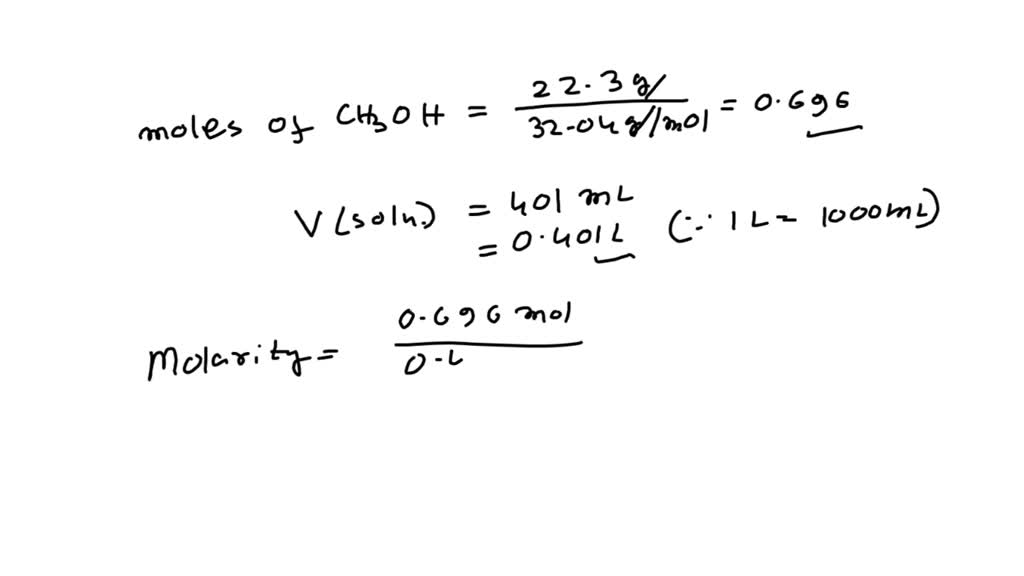 moles of CH3OH = 22.3 g / 32.04 g/mol = 0.696
V (soln.) = 401 mL
= 0.401 L (∵ 1 L = 1000 mL)
Molarity = 0.696 mol
0.4